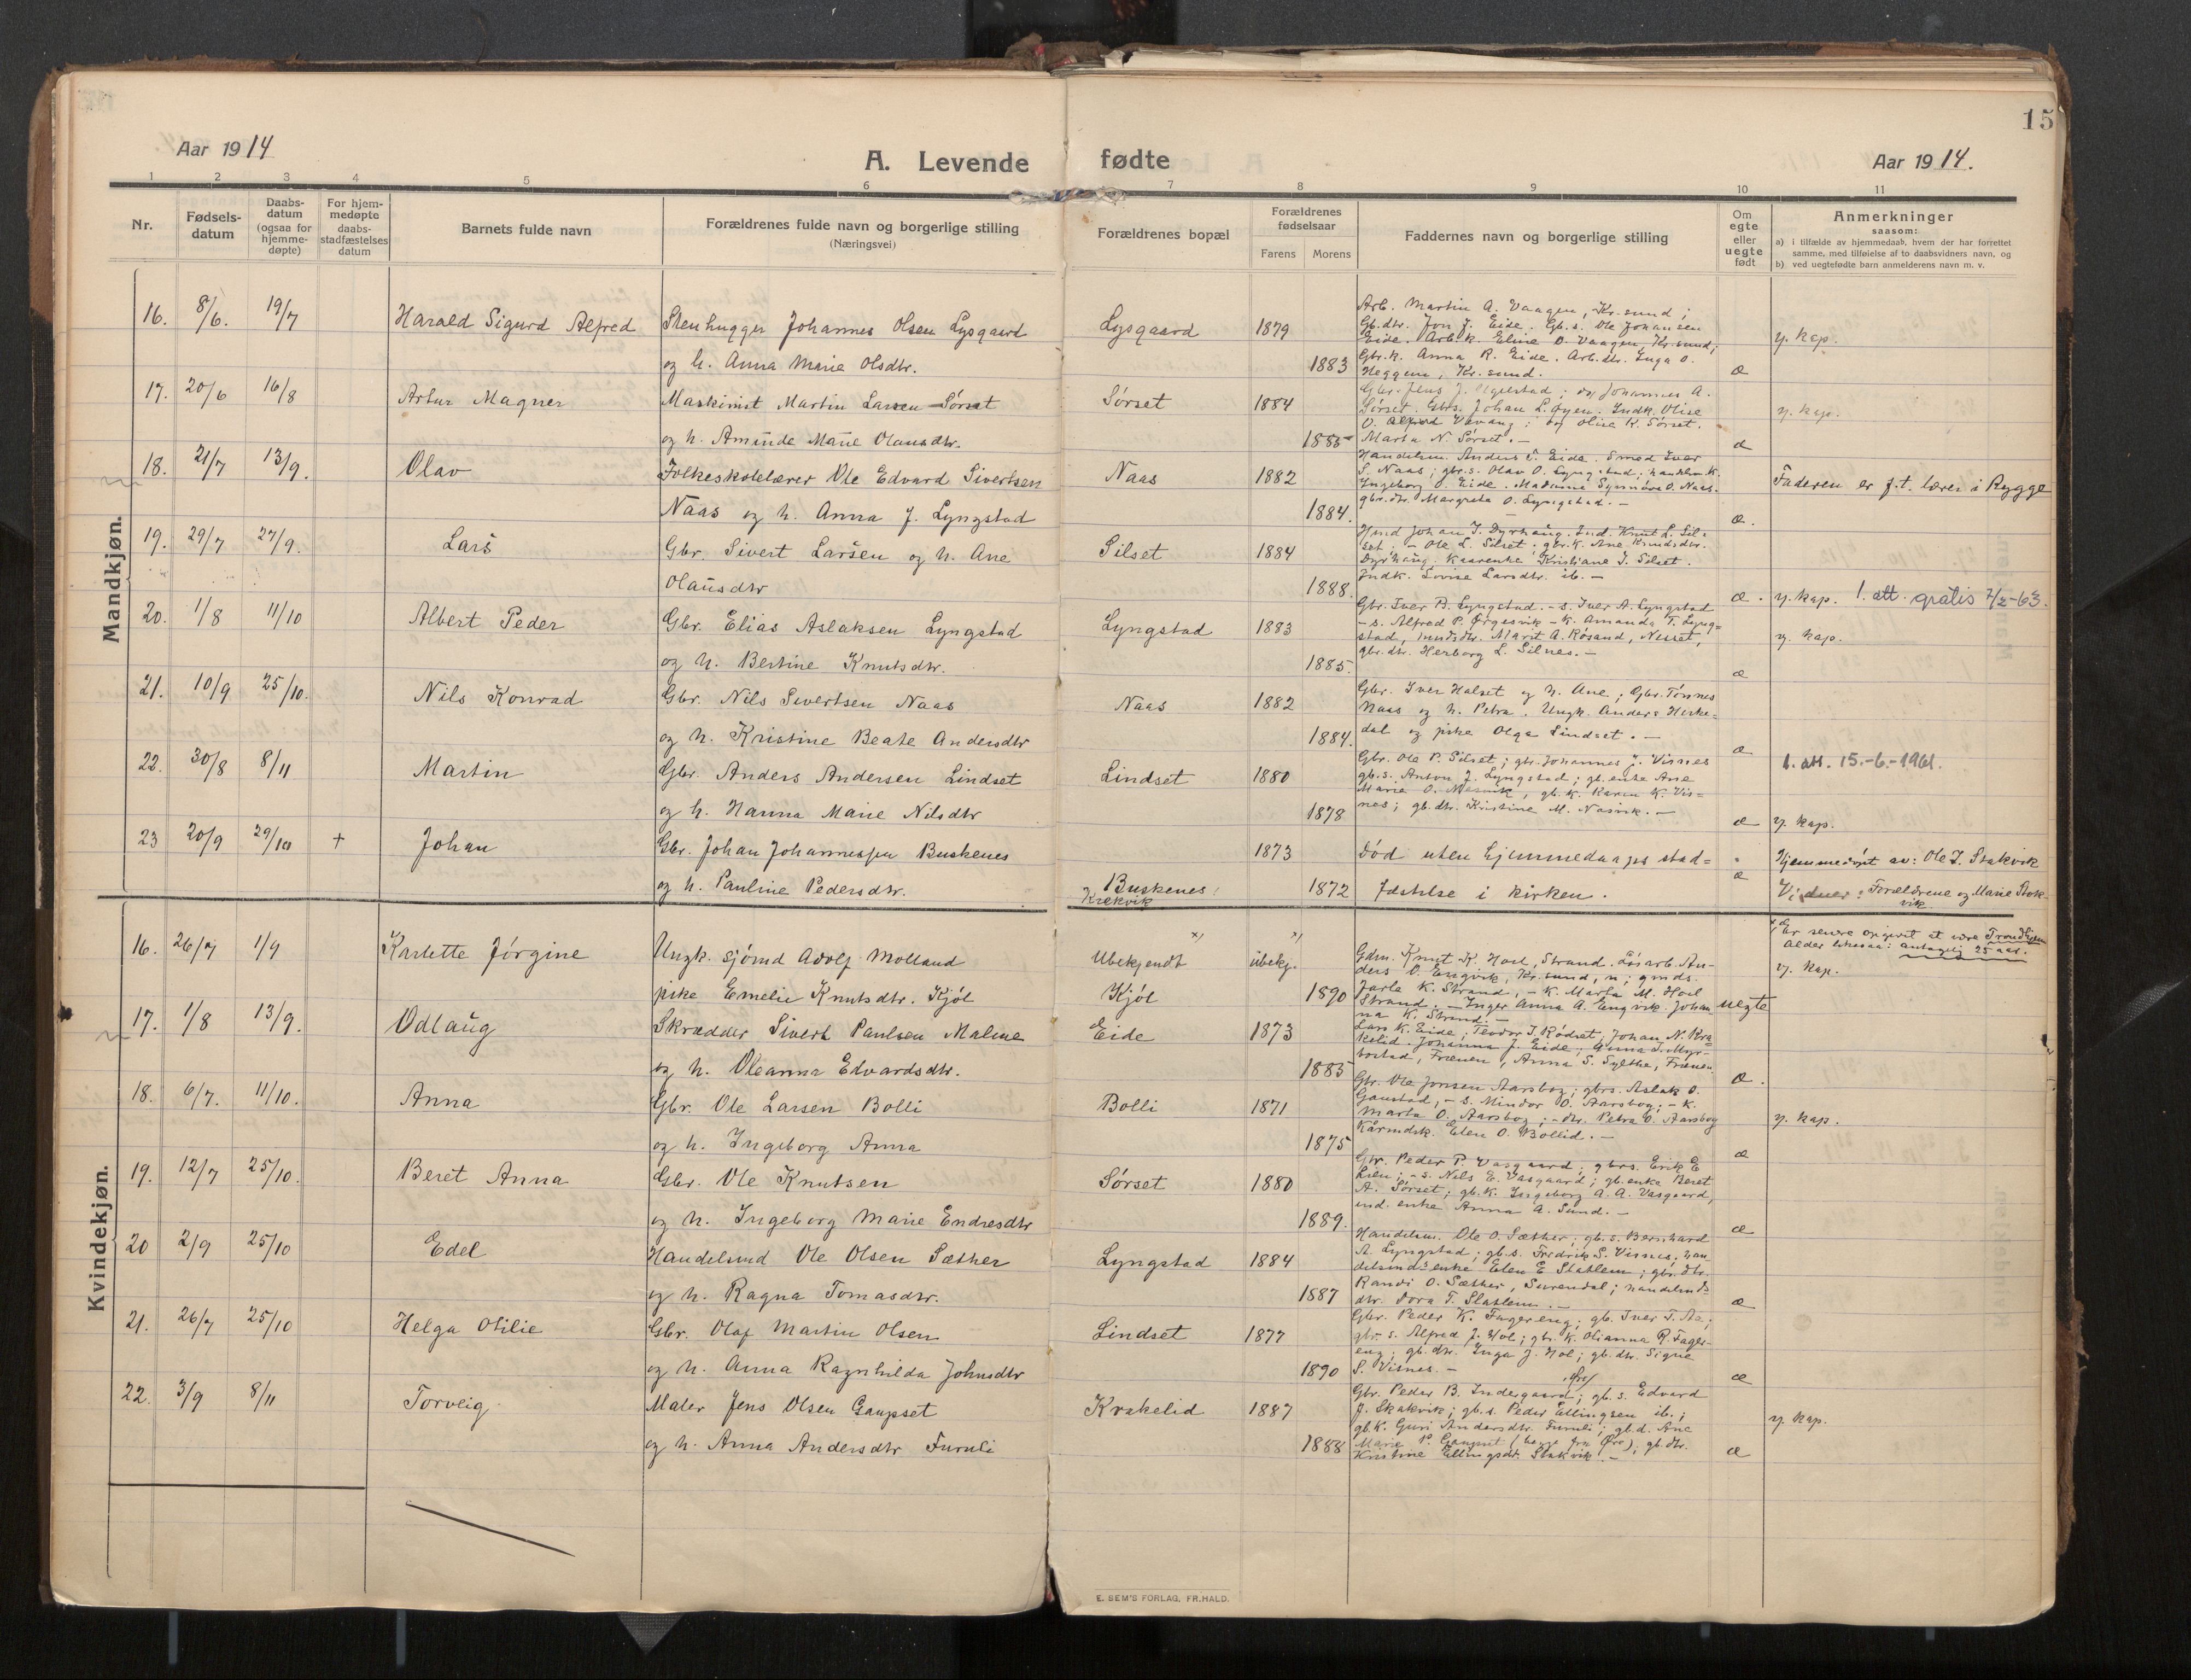 15
Aar 1914
A. Levende fødte
Aar 1914.
1 2 3 4 5 6 7 8 9 10 11
Nr.
Fødsels-
datum
Daabs-
datum
(ogsaa for
hjemme-
døpte)
For hjem-
medøpte
daabs-
stadfæstelses
datum
Barnets fulde navn
Forældrenes fulde navn og borgerlige stilling
(Næringsvei)
Forældrenes bopæl
Forældrenes
fødselsaar
Farens Morens
Faddernes navn og borgerlige stilling
Om
egte
eller
uegte
født
Anmerkninger
saasom:
a) i tilfælde av hjemmedaab, hvem der har forrettet
samme, med tilføielse af to daabsvidners navn, og
b) ved uegtefødte barn anmelderens navn m. v.
Mandkjøn.
16. 8/6. 19/7 Harald Sigurd Alfred Stenhugger Johannes Olsen Lysgaard Lysgaard 1879
og h. Anna Marie Olsdtr. 1883 æ
Arb. Martin A. Vaagen, Kr.sund;
Gb.dtr. Jon J. Eide. Gb.s. Ole Johansen
Eide. Arb.k. Eline O. Vaagen, Kr.sund;
Gbr.k. Anna R. Eide. Arb.dtr. Inga O.
Heggem, Kr.sund.
y. kap.
17. 20/6 16/8 Artur Magner Maskinist Martin Larsen Sørset Sørset 1884
og h. Aminde Marie Olausdtr. 1885 æ
Gbr. Jens J. ; og Johannes A.
Sørset. Gbrs. Johan L. Øyen. Indk. Olise
O. Alfred Vevang; og Olise K. Sørset.
Marta N. Sørset. –
y. kap.
18. 21/7 13/9. Olav Folkeskolelærer Ole Edvard Sivertsen Naas 1882
Naas og h. Anna J. Lyngstad 1884. æ.
Handelsm. Anders S. Eide. Smed Iver
S. Naas; gbr.s. Olav O. Lyngstad; handelsm.k.
Ingeborg O. Eide. Madame Synnøve O. Naas.
gbr.dtr. Margreta O. Lyngstad. –
Faderen er f.t. lærer i Rygge
19. 29/7 27/9. Lars Gbr. Sivert Larsen og h. Ane Silset 1884
Olausdtr 1888. æ.
Hand Johan I. Dyrhaug. Ind. Knut L. Sil-
set; – Ole L. Silset; gbr.k. Ane Knudsdtr.
Dyrhaug. Kaarenke Kristiane J. Silset.
Indk. Lovise Larsdtr. ib. –
y. kap. 1. att. gratis 7/2-63.
20. 1/8 11/10 Albert Peder Gbr. Elias Aslaksen Lyngstad Lyngstad 1883
og h. Bertine Knutsdtr. 1885. æ
Gbr. Iver B. Lyngstad. – s. Iver A. Lyngstad
– s. Alfred P. Ørgesvik – k. Amanda T. Lyng-
stad, Marit A. Røsand, Nesset,
gbr.dtr. Herborg L. Silnes. –
y. kap.
21. 10/9 25/10. Nils Konrad Gbr. Nils Sivertsen Naas Naas 1882
og h. Kristine Beate Andersdtr 1884. æ
Gbr. Iver Halset og h. Ane; Gbr. Tønnes
Naas og h. Petra. Ungk. Anders Hirke-
dal og pike Olga Lindset. –
22. 30/8 8/11 Martin Gbr. Anders Andersen Lindset Lindset 1880
og h. Hanna Marie Nilsdtr 1878 æ
Gbr. Ole P. Silset; gbr. Johannes J. Visnes
gb.s. Anton J. Lyngstad; gb.enke Ane
Marie O. Nasvik, gb.k. Karen K. Vis-
nes; gb.dtr. Kristine M. Nasvik. –
1. att. 15.-6.-1961.
y. kap.
23 20/9 29/10 + Johan Gbr. Johan Johannessen Buskenes 1873
og h. Pauline Pedersdtr. Buskenes, Krækvik 1872 æ
Død uten hjemmedaaps stad-
fæstelse i kirken.
Hjemmedøpt av: Ole J. Stakvik
Vidner: Forældrene og Marie Stok-
vik
Kvindekjøn.
16. 26/7 1/9 Karlette Jørgine Ungk. sjømd Adolf Molland Ubekjendt x) ubekj. x)
pike Emelie Knutsdtr. Kjøl Kjøl 1890 uegte
Gdm. Knut K. Hoel, Strand. Løsarb. An-
ders O. Engvik, Kr.sund, n; gmds.
Jarle K. Strand, – k. Marta M. Hoel
Strand. – Inger Anna A. Engvik. Johan-
na K. Strand. –
x) Er senere opgivet at være Trondhjem
Alder likesaa: antagelig 25 aar.
y. kap.
17. 1/8 13/9. Odlaug Skrædder Sivert Paulsen Malme Eide 1873
og h. Oleanna Edvardsdtr. 1885 æ.
Lars K. Eide; Teodor I. Rødset, Johan N. Kra-
kelid. Johanna J. Eide; Gunna I. Myr-
bostad, Frænen, Anna S. Sylthe, Frænen.
18. 6/7. 11/10. Anna Gbr. Ole Larsen Bolli Bolli 1871
og h. Ingeborg Anna 1875 æ
Gbr. Ole Jonsen Aarsbog; gbrs. Aslak O.
Gaustad, – s. Mindor O. Aarsbog; – k.
Marta O. Aarsbog; – dtr. Petra O. Aarsbog
Kårmdsk. Elen O. Bollid. –
y. kap.
19. 12/7 25/10. Beret Anna Gbr. Ole Knutsen Sørset 1880
og h. Ingeborg Marie Endresdtr 1889. æ
Gbr. Peder P. Vasgaard; gbrs. Erik E
Lien; – s. Nils E. Vasgaard; gb.enke Beret
A. Sørset; gb.k. Ingeborg A. A. Vasgaard,
ind. enke Anna A. Sund. –
20 2/9 25/10 Edel Handelsmd Ole Olsen Sæther Lyngstad 1884
og h. Ragna Tomasdtr. 1887 æ
Handelsm. Ole O. Sæther; gb.s. Bernhard
A. Lyngstad; gb.s. Fredrik S. Visnes; han-
delsmdsenke Elen E Stablem; gbr.dtr.
Randi O. Sæther, Surendal; handelsmds
dtr. Dora T. Slatlem. –
21. 26/7 25/10 Helga Otilie Gbr. Olaf Martin Olsen Lindset 1877
og h. Anna Ragnhilda Johnsdtr 1890 æ
Gbr. Peder K. Fagereng; gb. Iver T. Aa;
gbr.s. Alfred J. Hol; gbr.k. Olianna R. Fager-
eng; gb.dtr. Inga J. Hol; gb.dtr. Signe
S. Visnes. –
22. 3/9 8/11 Torveig Maler Jens Olsen Gaupset Krakelid 1887
og h. Anna Andersdtr Furuli 1888 æ
Gbr. Peder B. Indergaard; gb.s. Edvard
J. Skakvik; gb.s. Peder Ellingsen ib.;
gb.k. Guri Andersdtr. Furuli; gb.d. Ane
Marie P. Gaupset (begge fra Øre), gb.dtr.
Kristine Ellingsdtr. Stakvik. –
y. kap.
E. SEM'S FORLAG, FR.HALD.